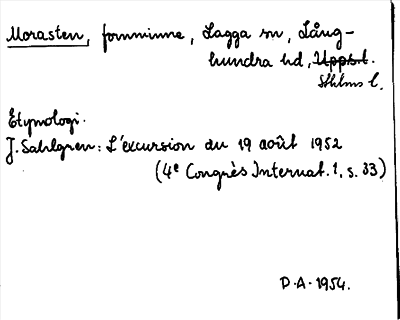 Morasten, fornminne, Lagga sn, Lång-
hundra hd, Upps. l.
Sthlms l.
Etymologi.
J. Sahlgren: L'éxcursion du 19 août 1952
(4e Congrès Internat. 1, s. 33)
D.A. 1954.